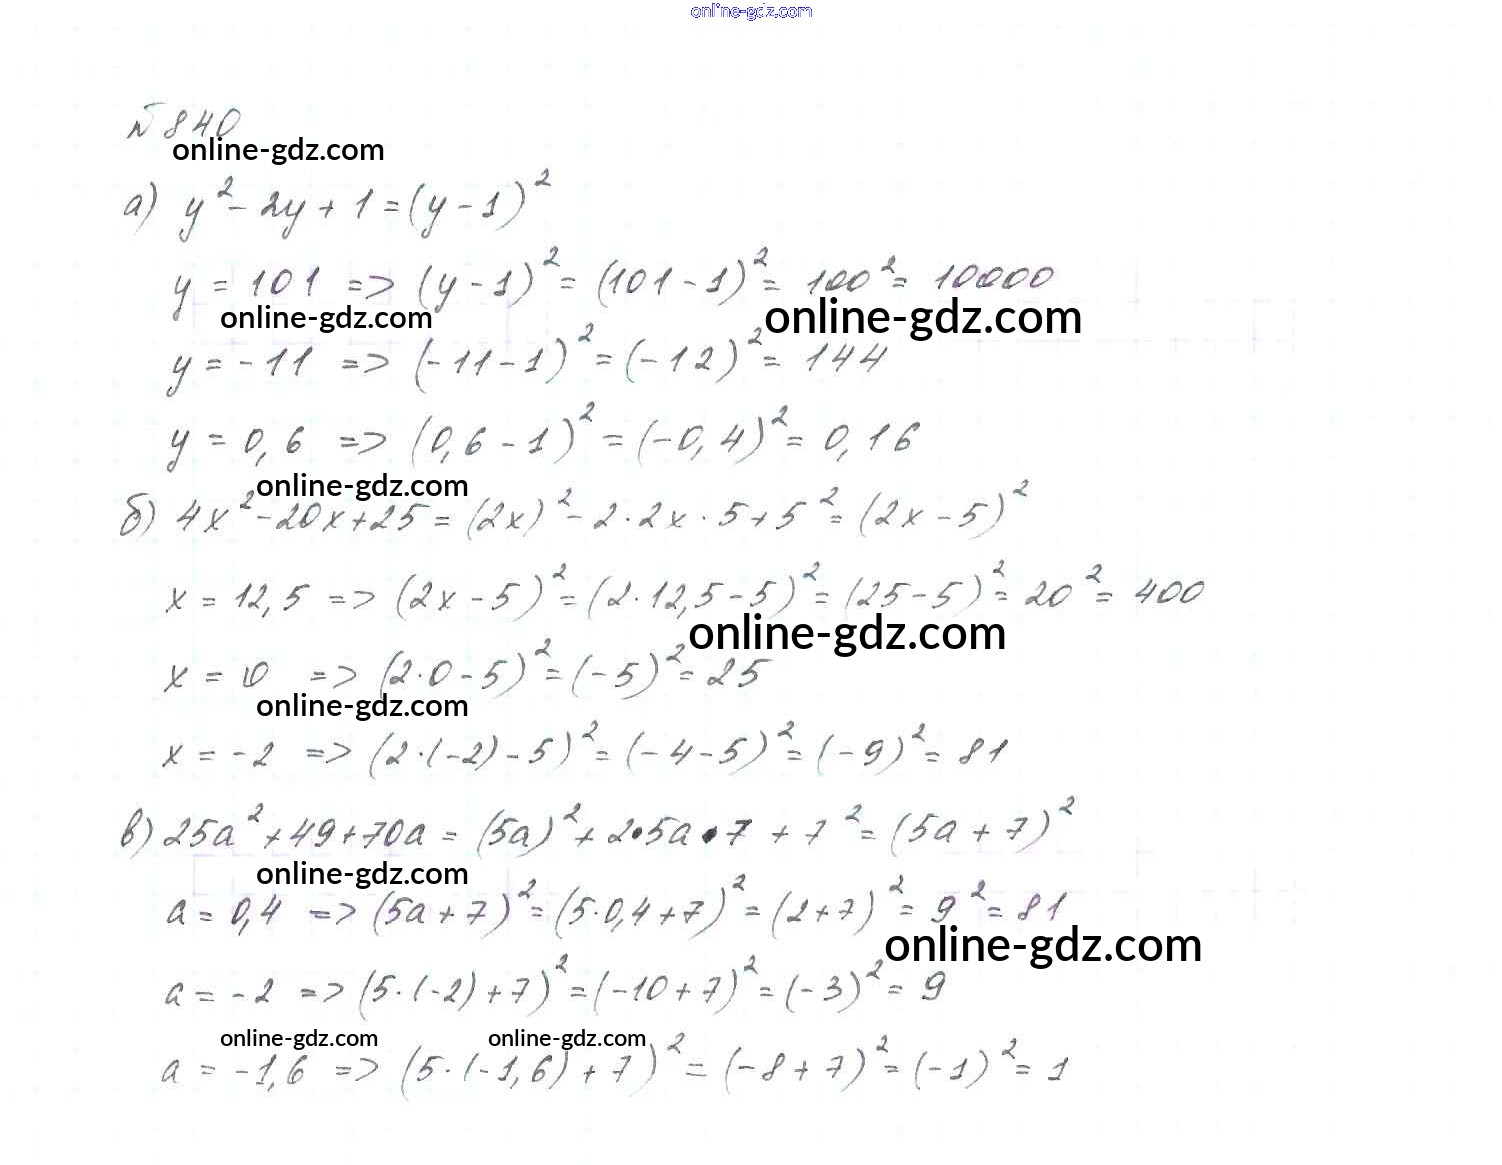 online-gdz.com
№840
online-gdz.com
а) y² - 2y + 1 = (y - 1)²
y = 101 => (y - 1)² = (101 - 1)² = 100² = 10000
online-gdz.com online-gdz.com
y = -11 => (-11 - 1)² = (-12)² = 144
y = 0,6 => (0,6 - 1)² = (-0,4)² = 0,16
online-gdz.com
б) 4x² - 20x + 25 = (2x)² - 2·2x·5 + 5² = (2x - 5)²
x = 12,5 => (2x - 5)² = (2·12,5 - 5)² = (25 - 5)² = 20² = 400
online-gdz.com
x = 0 => (2·0 - 5)² = (-5)² = 25
online-gdz.com
x = -2 => (2·(-2) - 5)² = (-4 - 5)² = (-9)² = 81
в) 25a² + 49 + 70a = (5a)² + 2·5a·7 + 7² = (5a + 7)²
online-gdz.com
a = 0,4 => (5a + 7)² = (5·0,4 + 7)² = (2 + 7)² = 9² = 81
online-gdz.com
a = -2 => (5·(-2) + 7)² = (-10 + 7)² = (-3)² = 9
online-gdz.com online-gdz.com
a = -1,6 => (5·(-1,6) + 7)² = (-8 + 7)² = (-1)² = 1